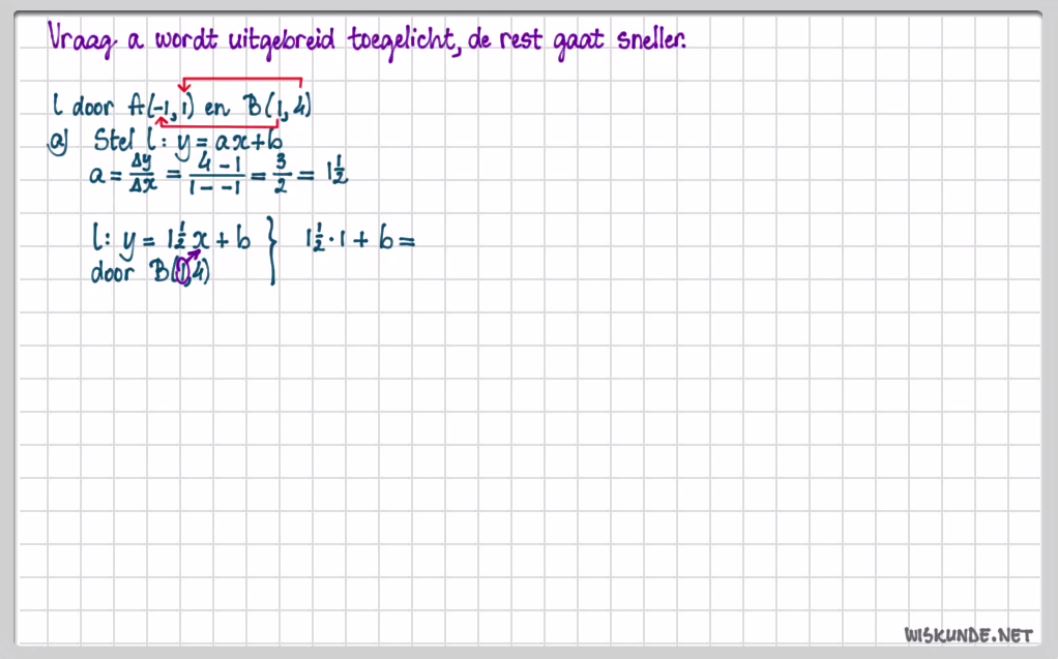 Vraag a wordt uitgebreid toegelicht, de rest gaat sneller.
l door A(-1,1) en B(1,4)
a) Stel l: y = ax+b
a = Δy/Δx = 4-1/1--1 = 3/2 = 1½
l: y = 1½x + b } 1½·1 + b =
door B(1,4)
WISKUNDE.NET